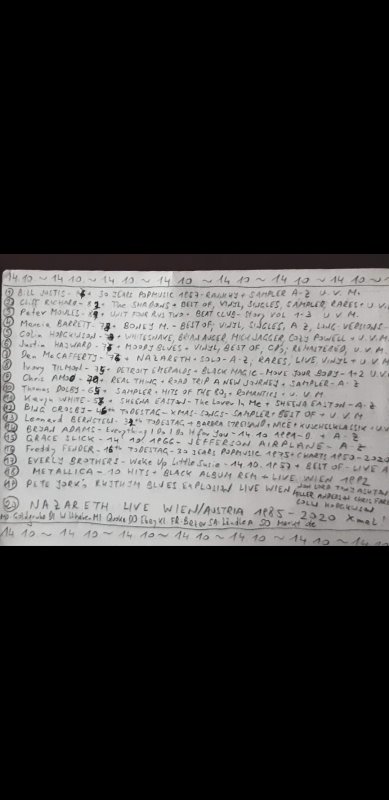 14.10 ~ 14 10 ~ 14 10 ~ 14 10 ~ 14 10 ~ 14 10 ~ 14 10 ~ 14 10
① BILL JUSTIS - + 30 JEARS POPMUSIC 1957 - RAUNCHY + SAMPLER A-Z U.V.M.
② CLIFF RICHARD - + THE SHADOWS + BEST OF, VINYL, SINGLES, SAMPLER, RARES + U.V.M
③ PETER MOULES - + UNIT FOUR PLUS TWO + BEAT CLUB - STORY VOL 1-3 U V M
④ MARCIA BARRETT - + BONEY M. - BEST OF, VINYL, SINGLES, A Z, LONG-VERSIONS
⑤ COLIN HODGKINSON + WHITESNAKE, MICK JAGGER COZY POWELL + U.V.M.
⑥ JUSTIN HAYWARD - + MOODY BLUES + VINYL, BEST OF, CDS, REMASTERED, U.V.M
⑦ DAN McCAFFERTY - + NAZARETH + SOLO - A-Z, RARES, LIVE, VINYL + U.V.M
⑧ IVORY TILMON - + DETROIT EMERALDS + BLACK MAGIC - MOVE YOUR BODY - 1+2 U.V.M
⑨ CHRIS + REAL THING + ROAD TRIP A NEW JOURNEY + SAMPLER - A-Z
⑩ THOMAS DOLBY - + SAMPLER + HITS OF THE 80s + ROMANTICS + U.V.M.
⑪ KARYN WHITE - + SHEENA EASTON - THE LOVER IN ME + SHEENA EASTON - A-Z
⑫ BING CROSBY - TH TODESTAG - XMAS-SONGS - SAMPLER + BEST OF + U V M
⑬ LEONARD BERNSTEIN - TH TODESTAG + BARBRA STREISAND + NICE + KUSCHELKLASSIK + U.V.M
⑭ BRYAN ADAMS - EVERYTHING I DO I DO IT FOR YOU - 14 10 1991 - + A-Z
⑮ GRACE SLICK - 14 10 1966 - JEFFERSON AIRPLANE - A Z
⑯ FREDDY FENDER - TH TODESTAG - 30 JEARS POPMUSIC 1975 + CHARTS 1950 - 2020
⑰ EVERLY BROTHERS - WAKE UP LITTLE SUSIE - 14.10.1957 + BEST OF - LIVE A
⑱ METALLICA - 10 HITS + BLACK ALBUM REM + LIVE WIEN 1992
⑲ PETE YORK'S RHYTHM BLUES EXPLOSION LIVE WIEN JON LORD TONY ASHTON
MILLER ANDERSON CHRIS FARLOWE
COLIN HODGKINSON
⑳ NAZARETH LIVE WIEN/AUSTRIA 1985 - 2020 Xmal
DI MI DO FR SA SO
14 10 ~ 14 10 ~ 14 10 ~ 14 10 ~ 14 10 ~ 14 10 ~ 14 10 ~ 14 10